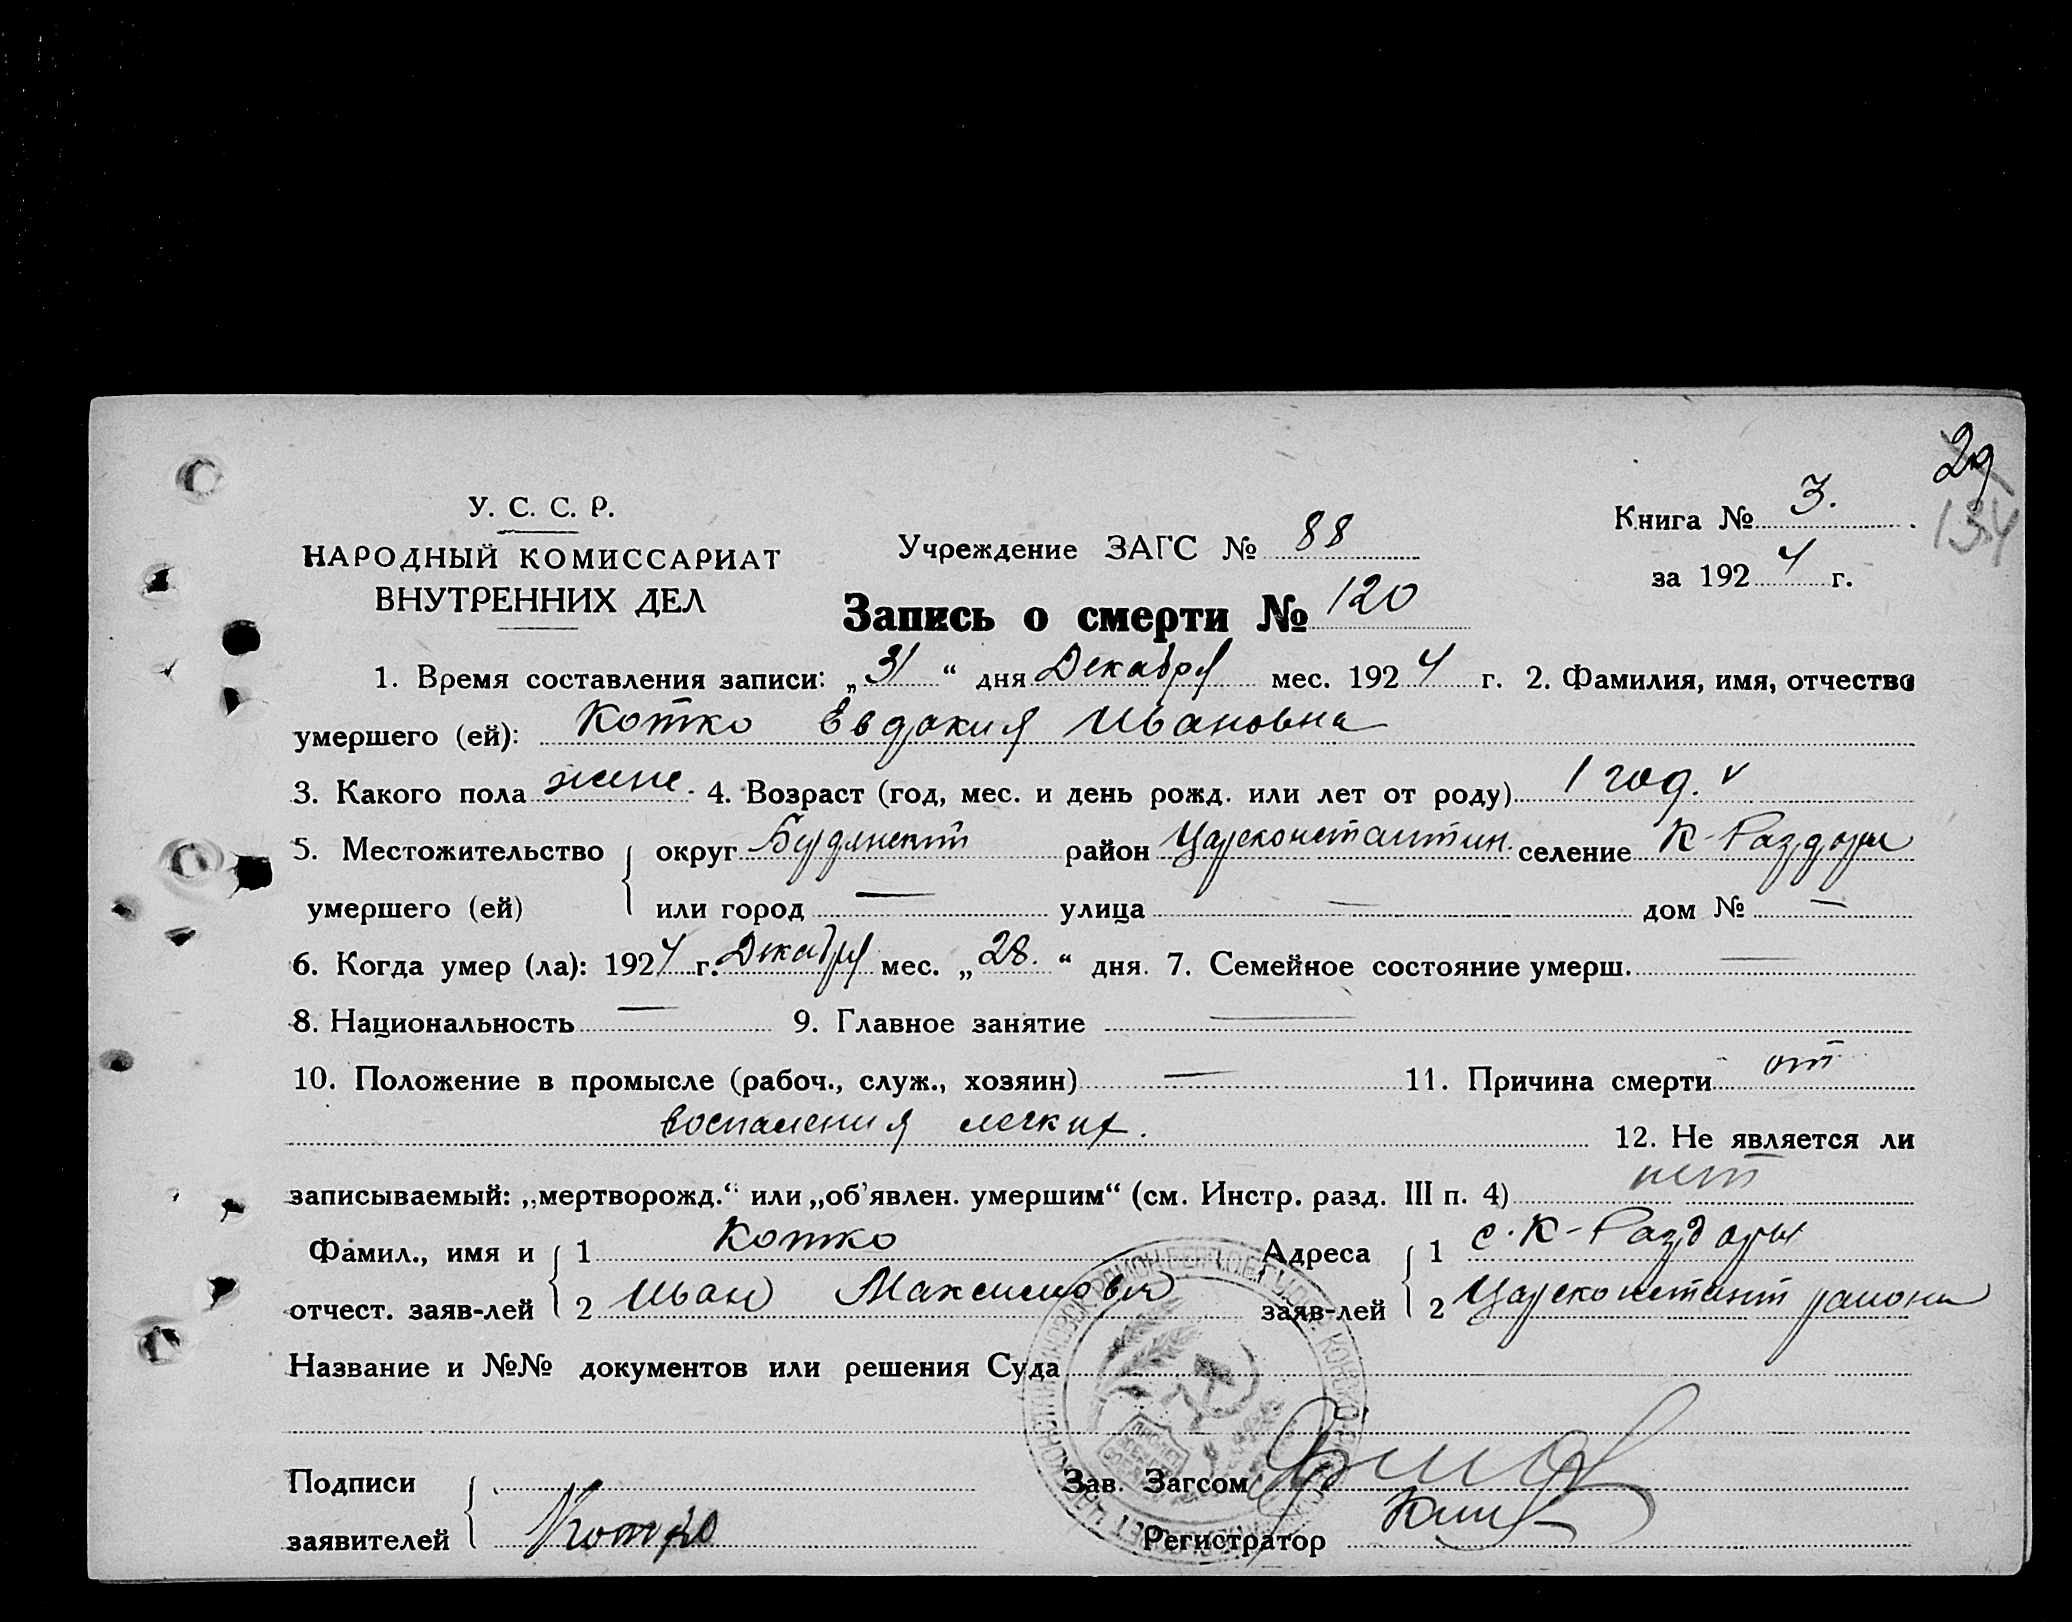 29
134
У. С. С. Р.
НАРОДНЫЙ КОМИССАРИАТ
ВНУТРЕННИХ ДЕЛ
Учреждение ЗАГС № 88
Книга № 3.
за 1924 г.
Запись о смерти № 120
1. Время составления записи: „31“ дня Декабря мес. 1924 г. 2. Фамилия, имя, отчество
умершего (ей): Котко Евдокия Ивановна
3. Какого пола женс. 4. Возраст (год, мес. и день рожд. или лет от роду) 1 год. v
5. Местожительство округ район Цареконстантин. селение К-Раздоры
умершего (ей) или город — улица — дом № —
6. Когда умер (ла): 1924 г. Декабря мес. „28.“ дня. 7. Семейное состояние умерш. —
8. Национальность — 9. Главное занятие —
10. Положение в промысле (рабоч., служ., хозяин) — 11. Причина смерти от
воспаления легких. 12. Не является ли
записываемый: „мертворожд.“ или „об'явлен. умершим“ (см. Инстр. разд. III п. 4) нет
Фамил., имя и 1 Котко Адреса 1 с. К-Раздоры
отчест. заяв-лей 2 Иван Максимович заяв-лей 2 Цареконстант района
Название и №№ документов или решения Суда
Подписи Зав. Загсом
заявителей Котко Регистратор